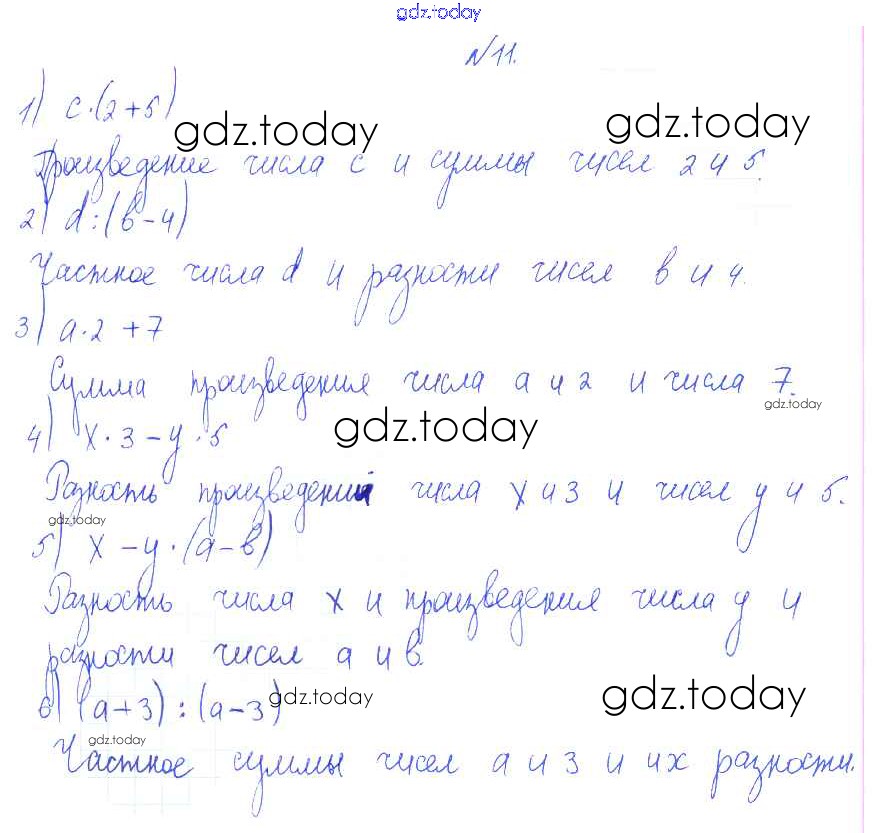 gdz.today
№11.
1) c·(2+5)
gdz.today gdz.today
Произведение числа c и суммы чисел 2 и 5.
2) d:(b-4)
Частное числа d и разности чисел b и 4.
3) a·2+7
Сумма произведения числа a и 2 и числа 7.
gdz.today
4) x·3-y·5
gdz.today
Разность произведений числа x и 3 и чисел y и 5.
gdz.today
5) x-y·(a-b)
Разность числа x и произведения числа y и
разности чисел a и b.
6) (a+3):(a-3)
gdz.today gdz.today
gdz.today
Частное суммы чисел a и 3 и их разности.